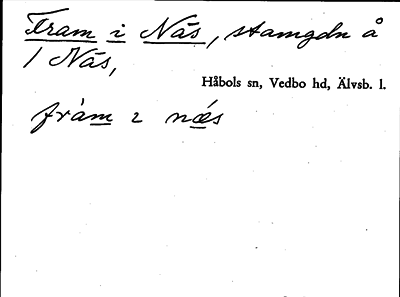 Fram i Näs, stamgdn å
1 Näs,
Håbols sn, Vedbo hd, Älvsb. l.
fràm ɩ næ̀s